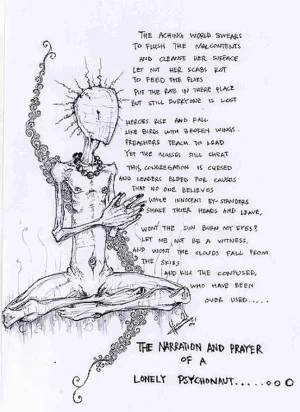 THE ACHING WORLD SWEARS
TO FLUSH THE MALCONTENTS
AND CLEANSE HER SURFACE
LET NOT HER SCABS ROT
TO FEED THE FLIES
PUT THE RATS IN THERE PLACE
BUT STILL EVERYONE IS LOST
HEROES RISE AND FALL
LIKE BIRDS WITH BROKEN WINGS.
PREACHERS TEACH TO LEAD
YET THE MASSES STILL CHEAT
THIS CONGREGATION IS CURSED
AND LEADERS BLEED FOR CAUSES
THAT NO ONE BELIEVES
WHILE INNOCENT BY-STANDERS
SHAKE THIER HEADS AND LEAVE,
WONT THE SUN BURN MY EYES?
LET ME NOT BE A WITNESS,
AND WONT THE CLOUDS FALL FROM
THE SKIES
AND KILL THE CONFUSED,
WHO HAVE BEEN
OVER USED.....
THE NARRATION AND PRAYER
OF A
LONELY PSYCHONAUT.....ooO